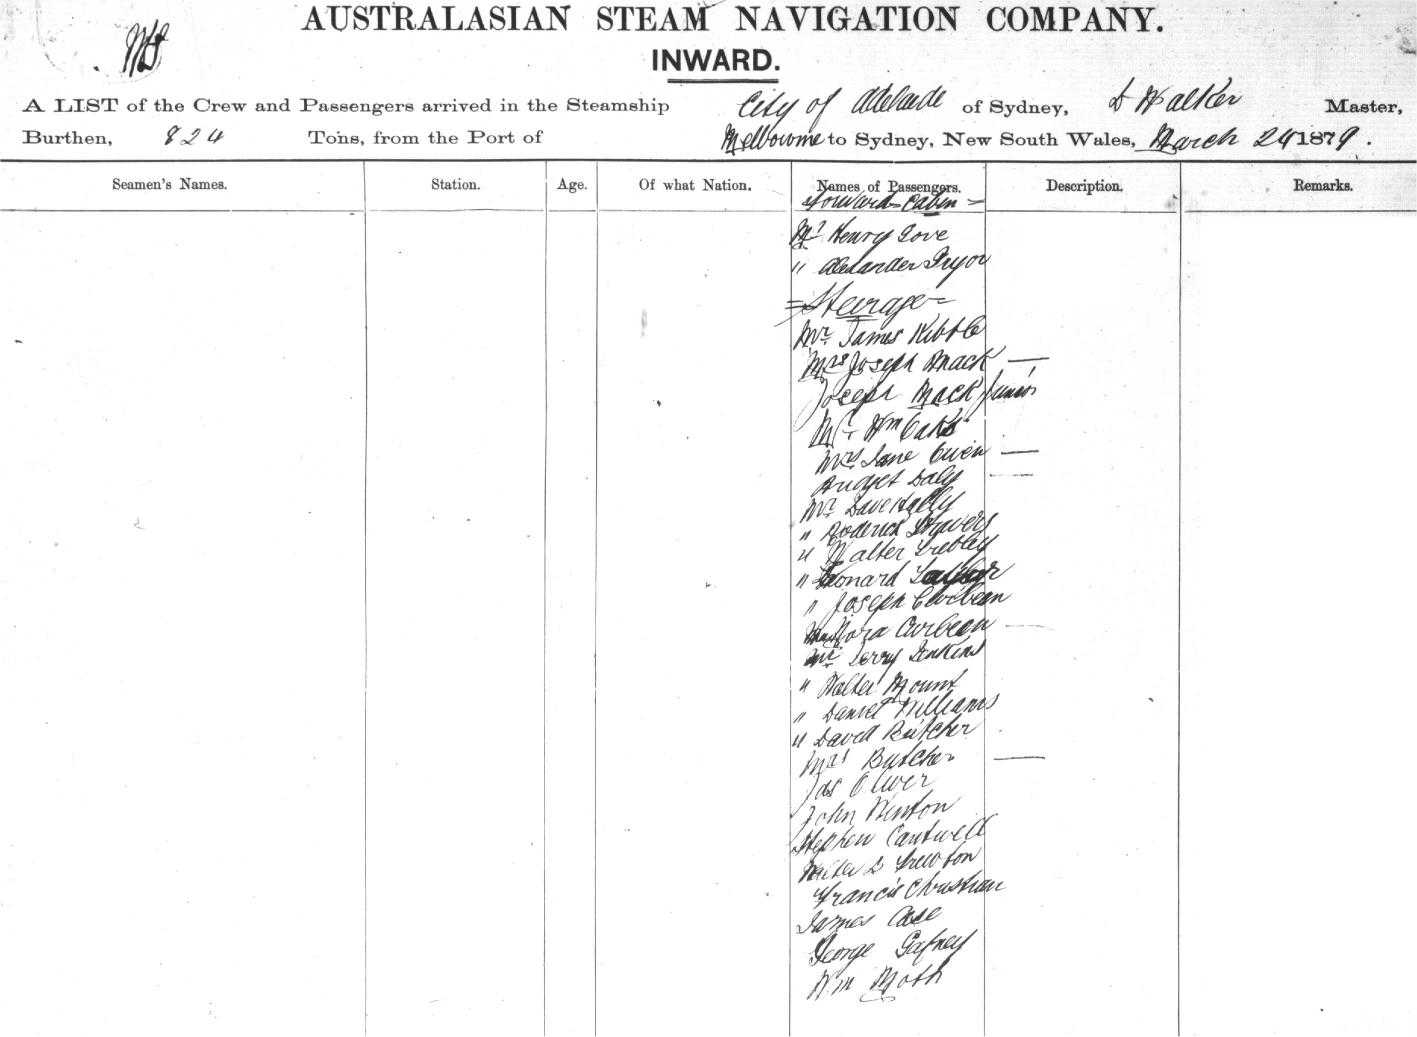 AUSTRALASIAN STEAM NAVIGATION COMPANY.
INWARD.
A LIST of the Crew and Passengers arrived in the Steamship City of Adelaide of Sydney, D Walker Master,
Burthen, 824 Tons, from the Port of Melbourne to Sydney, New South Wales, March 24 1879.
Seamen's Names. Station. Age. Of what Nation. Names of Passengers. Description. Remarks.
Forward Cabin
Mr Henry Love
" Alexander Pryor
=Steerage=
Mr James Kibble
Mrs Joseph Mack —
Joseph Mack Junior
Mr Wm Oaks
Mrs Jane Owen —
Bridget Daly —
Mr Dave Hally
" Roderick
" Walter
" Leonard
" Joseph
Nora —
Mr Jerry Jenkins
" Walter Mount
" Daniel Williams
" David Butcher
Mrs Butcher —
Jas Oliver
John Winton
Stephen Cantwell
Walter
Francis Christian
James Case
George Gafney
Wm Moth